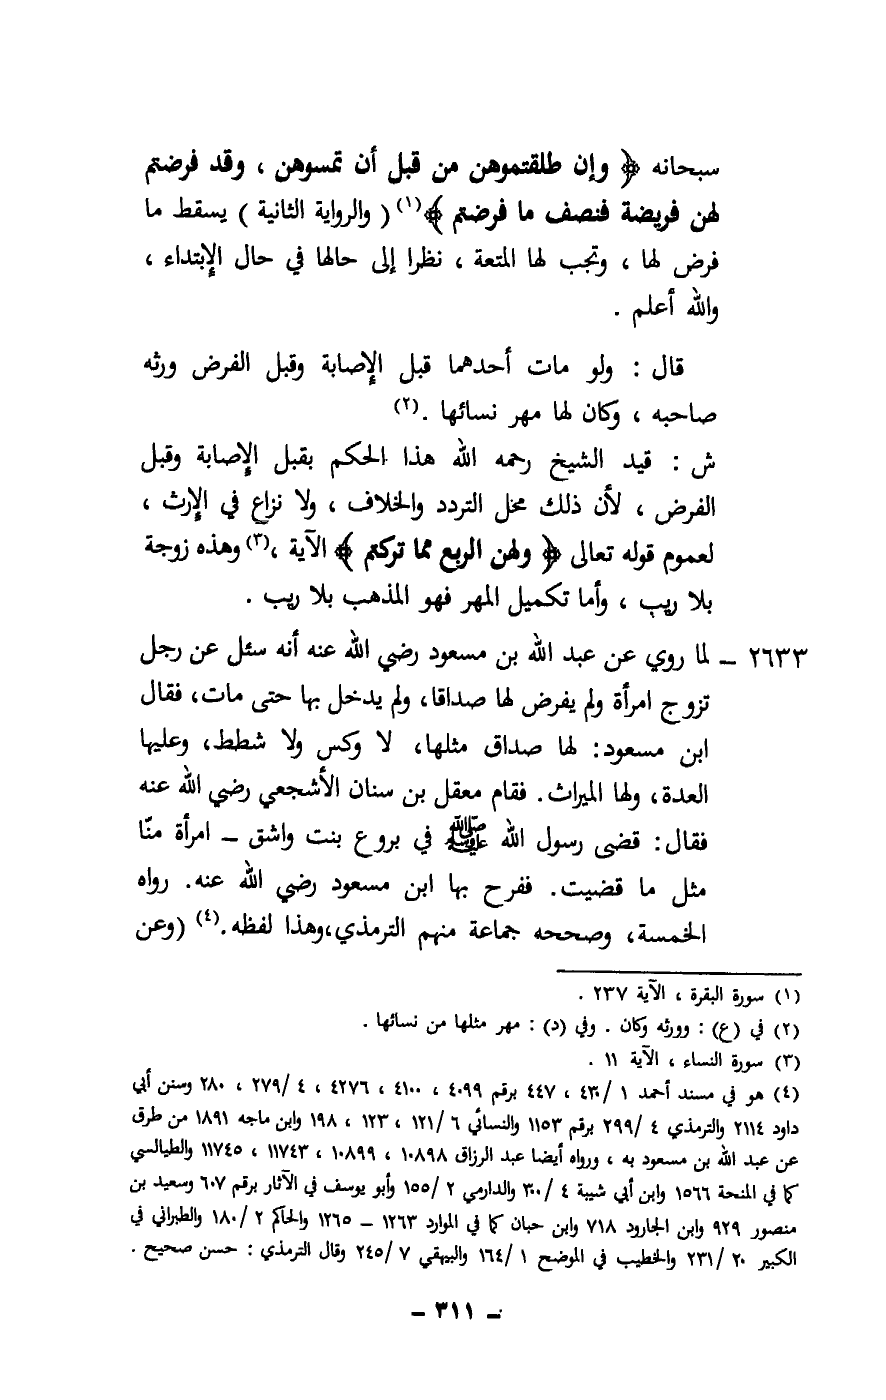 سبحانه ﴿ وإن طلقتموهن من قبل أن تمسوهن ، وقد فرضتم
لهن فريضة فنصف ما فرضتم ﴾(١) ( والرواية الثانية ) يسقط ما
فرض لها ، وتجب لها المتعة ، نظرا إلى حالها في حال الإبتداء ،
والله أعلم .
قال : ولو مات أحدهما قبل الإصابة وقبل الفرض ورثه
صاحبه ، وكان لها مهر نسائها .(٢)
ش : قيد الشيخ رحمه الله هذا الحكم بقبل الإصابة وقبل
الفرض ، لأن ذلك محل التردد والخلاف ، ولا نزاع في الإرث ،
لعموم قوله تعالى ﴿ ولهن الربع مما تركتم ﴾ الآية ،(٣) وهذه زوجة
بلا ريب ، وأما تكميل المهر فهو المذهب بلا ريب .
٢٦٣٣ – لما روي عن عبد الله بن مسعود رضي الله عنه أنه سئل عن رجل
تزوج امرأة ولم يفرض لها صداقا، ولم يدخل بها حتى مات، فقال
ابن مسعود: لها صداق مثلها، لا وكس ولا شطط، وعليها
العدة، ولها الميراث. فقام معقل بن سنان الأشجعي رضي الله عنه
فقال: قضى رسول الله ﷺ في بروع بنت واشق – امرأة منّا
مثل ما قضيت. ففرح بها ابن مسعود رضي الله عنه. رواه
الخمسة، وصححه جماعة منهم الترمذي،وهذا لفظه.(٤) (وعن
(١) سورة البقرة ، الآية ٢٣٧ .
(٢) في (ع) : وورثه وكان . وفي (د) : مهر مثلها من نسائها .
(٣) سورة النساء ، الآية ١١ .
(٤) هو في مسند أحمد ١ /٤٣٠ ، ٤٤٧ برقم ٤٠٩٩ ، ٤١٠٠ ، ٤٢٧٦ ، ٤ /٢٧٩ ، ٢٨٠ وسنن أبي
داود ٢١١٤ والترمذي ٤ /٢٩٩ برقم ١١٥٣ والنسائي ٦ /١٢١ ، ١٢٣ ، ١٩٨ وابن ماجه ١٨٩١ من طرق
عن عبد الله بن مسعود به ، ورواه أيضا عبد الرزاق ١٠٨٩٨ ، ١٠٨٩٩ ، ١١٧٤٣ ، ١١٧٤٥ والطيالسي
كما في المنحة ١٥٦٦ وابن أبي شيبة ٤ /٣٠٠ والدارمي ٢ /١٥٥ وأبو يوسف في الآثار برقم ٦٠٧ وسعيد بن
منصور ٩٢٩ وابن الجارود ٧١٨ وابن حبان كما في الموارد ١٢٦٣ – ١٢٦٥ والحاكم ٢ /١٨٠ والطبراني في
الكبير ٢٠ /٢٣١ والخطيب في الموضح ١ /١٦٤ والبيهقي ٧ /٢٤٥ وقال الترمذي : حسن صحيح .
– ٣١١ –